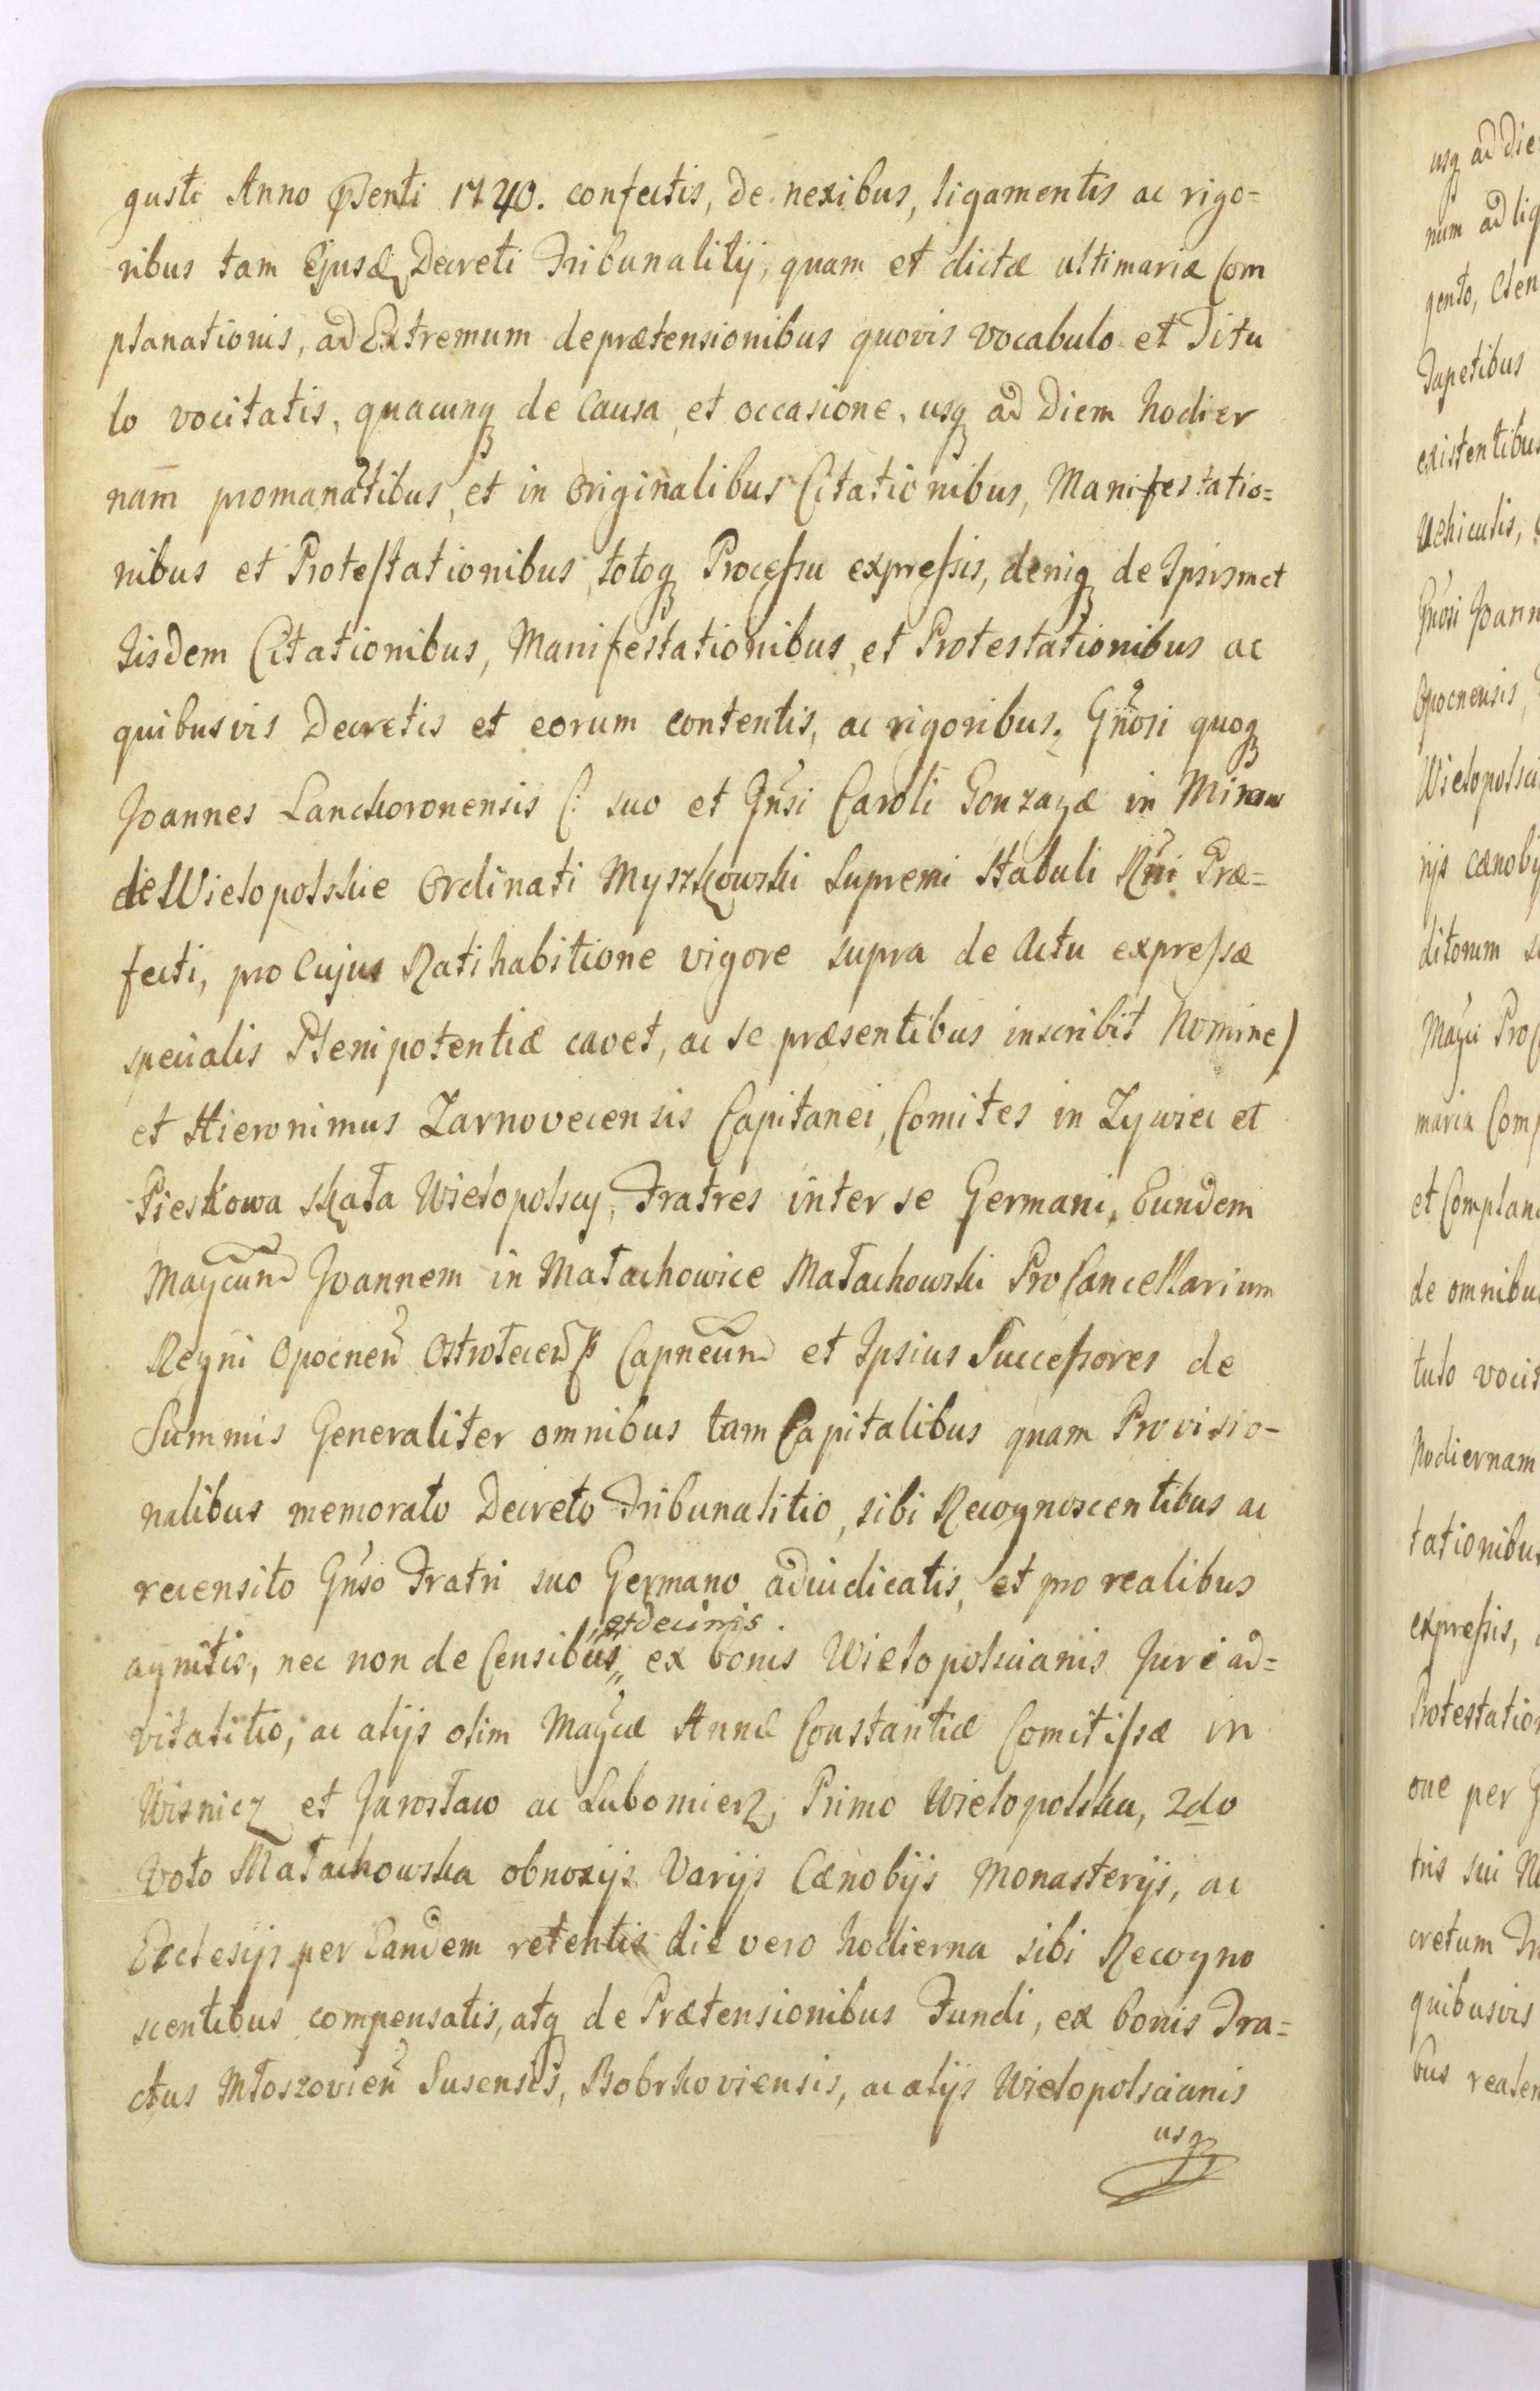 gusti Anno Psenti 1740. confectis, de nexibus, ligamentis ac rigo=
ribus tam Ejusd Decreti Tribunalitij, quam et dictæ ultimariæ Com
planationis, ad Extremum deprætensionibus quovis vocabulo et Titu
lo vocitatis, quacunq de Causa, et occasione, usq ad Diem hodier
nam promanatibus, et in Originalibus Citationibus, Manifestatio=
nibus et Protestationibus, totoq Processu expressis, deniq de Ipsismet
Iisdem Citationibus, Manifestationibus, et Protestationibus ac
quibusvis Decretis et eorum contentis, ac rigoribus. Gnosi quoq
Joannes Lanckoronensis (: suo et Gnsi Caroli Gonzagæ in Mirow
de Wielopolskie Ordinati Myszkowski Supremi Stabuli Rni Præ=
fecti, pro Cujus Ratihabitione vigore supra de Actu expressæ
specialis Plenipotentiæ cavet, ac se præsentibus inscribit Nomine)
et Hieronimus Zarnovecensis Capitanei, Comites in Zywiec et
Pieskowa skała Wielopolscy, Fratres inter se Germani, Eundem
Magcum Joannem in Małachowice Małachowski ProCancellarium
Regni Opocnen Ostrołecen Capneum et Ipsius Successores de
Summis Generaliter omnibus tam Capitalibus quam Provisio-
nalibus memorato Decreto Tribunalitio, sibi Recognoscentibus ac
recensito Gnso Fratri suo Germano adiudicatis, et pro realibus
agnitis, nec non de Censibus et decimis. ex bonis Wielopolscianis Jure ad=
vitalitio, ac alijs olim Magcæ Annæ Constantiæ Comitissæ in
Wisnicz et Jarosław ac Lubomierz, Primo Wielopolska, 2do
Voto Małachowska obnoxijs Varijs Cænobijs Monasterijs, ac
Ecclesijs per Eandem retentis die vero hodierna sibi Recogno
scentibus compensatis, atq de Prætensionibus Fundi, ex bonis Tra=
ctus Młoszovien Susensis, Bobrkoviensis, ac alijs Wielopolscianis
usq